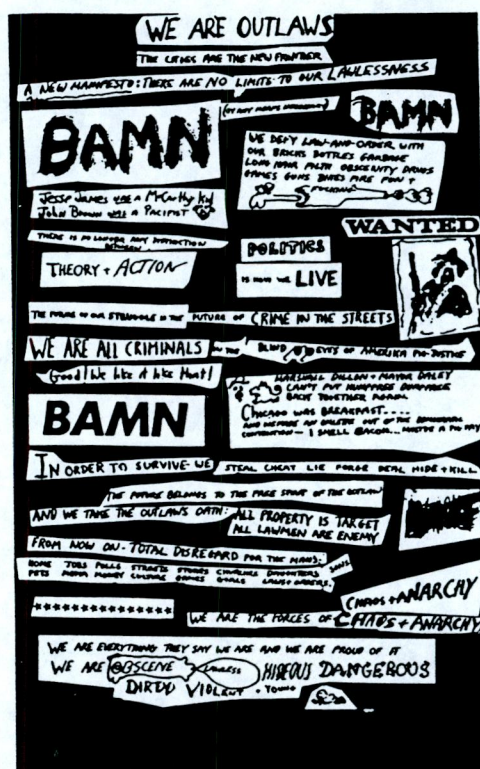 WE ARE OUTLAWS
THE CITIES ARE THE NEW FRONTIER
A NEW MANIFESTO: THERE ARE NO LIMITS TO OUR LAWLESSNESS
BAMN
(BY ANY MEANS NECESSARY)
BAMN
WE DEFY LAW-AND-ORDER WITH
OUR BRICKS BOTTLES GARBAGE
LONG HAIR FILTH OBSCENITY DRUGS
GAMES GUNS BIKES FIRE FUN +
FUCKING
Jesse James was a McCarthy kid
John Brown was a Pacifist
WANTED
THERE IS NO LONGER ANY DISTINCTION
BETWEEN
THEORY + ACTION
POLITICS
IS HOW WE LIVE
THE FUTURE OF OUR STRUGGLE IS THE FUTURE OF CRIME IN THE STREETS
WE ARE ALL CRIMINALS IN THE BLIND EYES OF AMERIKA PIG-JUSTICE
Good! We like it like that!
MARSHALL DILLON + MAYOR DALEY
CAN'T PUT HUMPTY DUMPTY
BACK TOGETHER AGAIN
CHICAGO WAS BREAKFAST....
AND WE MADE AN OMLETTE OUT OF THE DEMOCRATIC
CONVENTION - I SMELL BACON...
BAMN
IN ORDER TO SURVIVE WE STEAL CHEAT LIE FORGE DEAL HIDE + KILL
THE FUTURE BELONGS TO THE FREE SPIRIT OF THE OUTLAW
AND WE TAKE THE OUTLAW'S OATH: ALL PROPERTY IS TARGET
ALL LAWMEN ARE ENEMY
FROM NOW ON - TOTAL DISREGARD FOR THE MANS:
HOME JOBS POLLS STREETS STORES CHURCHES DAUGHTERS SONS
PETS MEDIA MONEY CULTURE GAMES GOALS LAWS + ORDERS.
CHAOS + ANARCHY
***************
WE ARE THE FORCES OF CHAOS + ANARCHY
WE ARE EVERYTHING THEY SAY WE ARE AND WE ARE PROUD OF IT
WE ARE OBSCENE LAWLESS HIDEOUS DANGEROUS
DIRTY VIOLENT + YOUNG